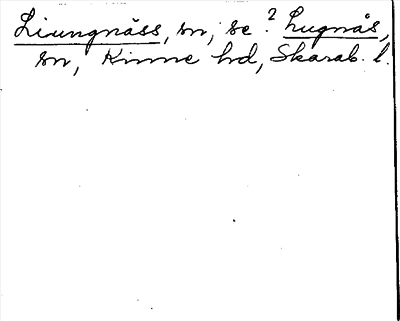 Liungnäss, sn, se ? Lugnås,
sn, Kinne hd, Skarab. l.